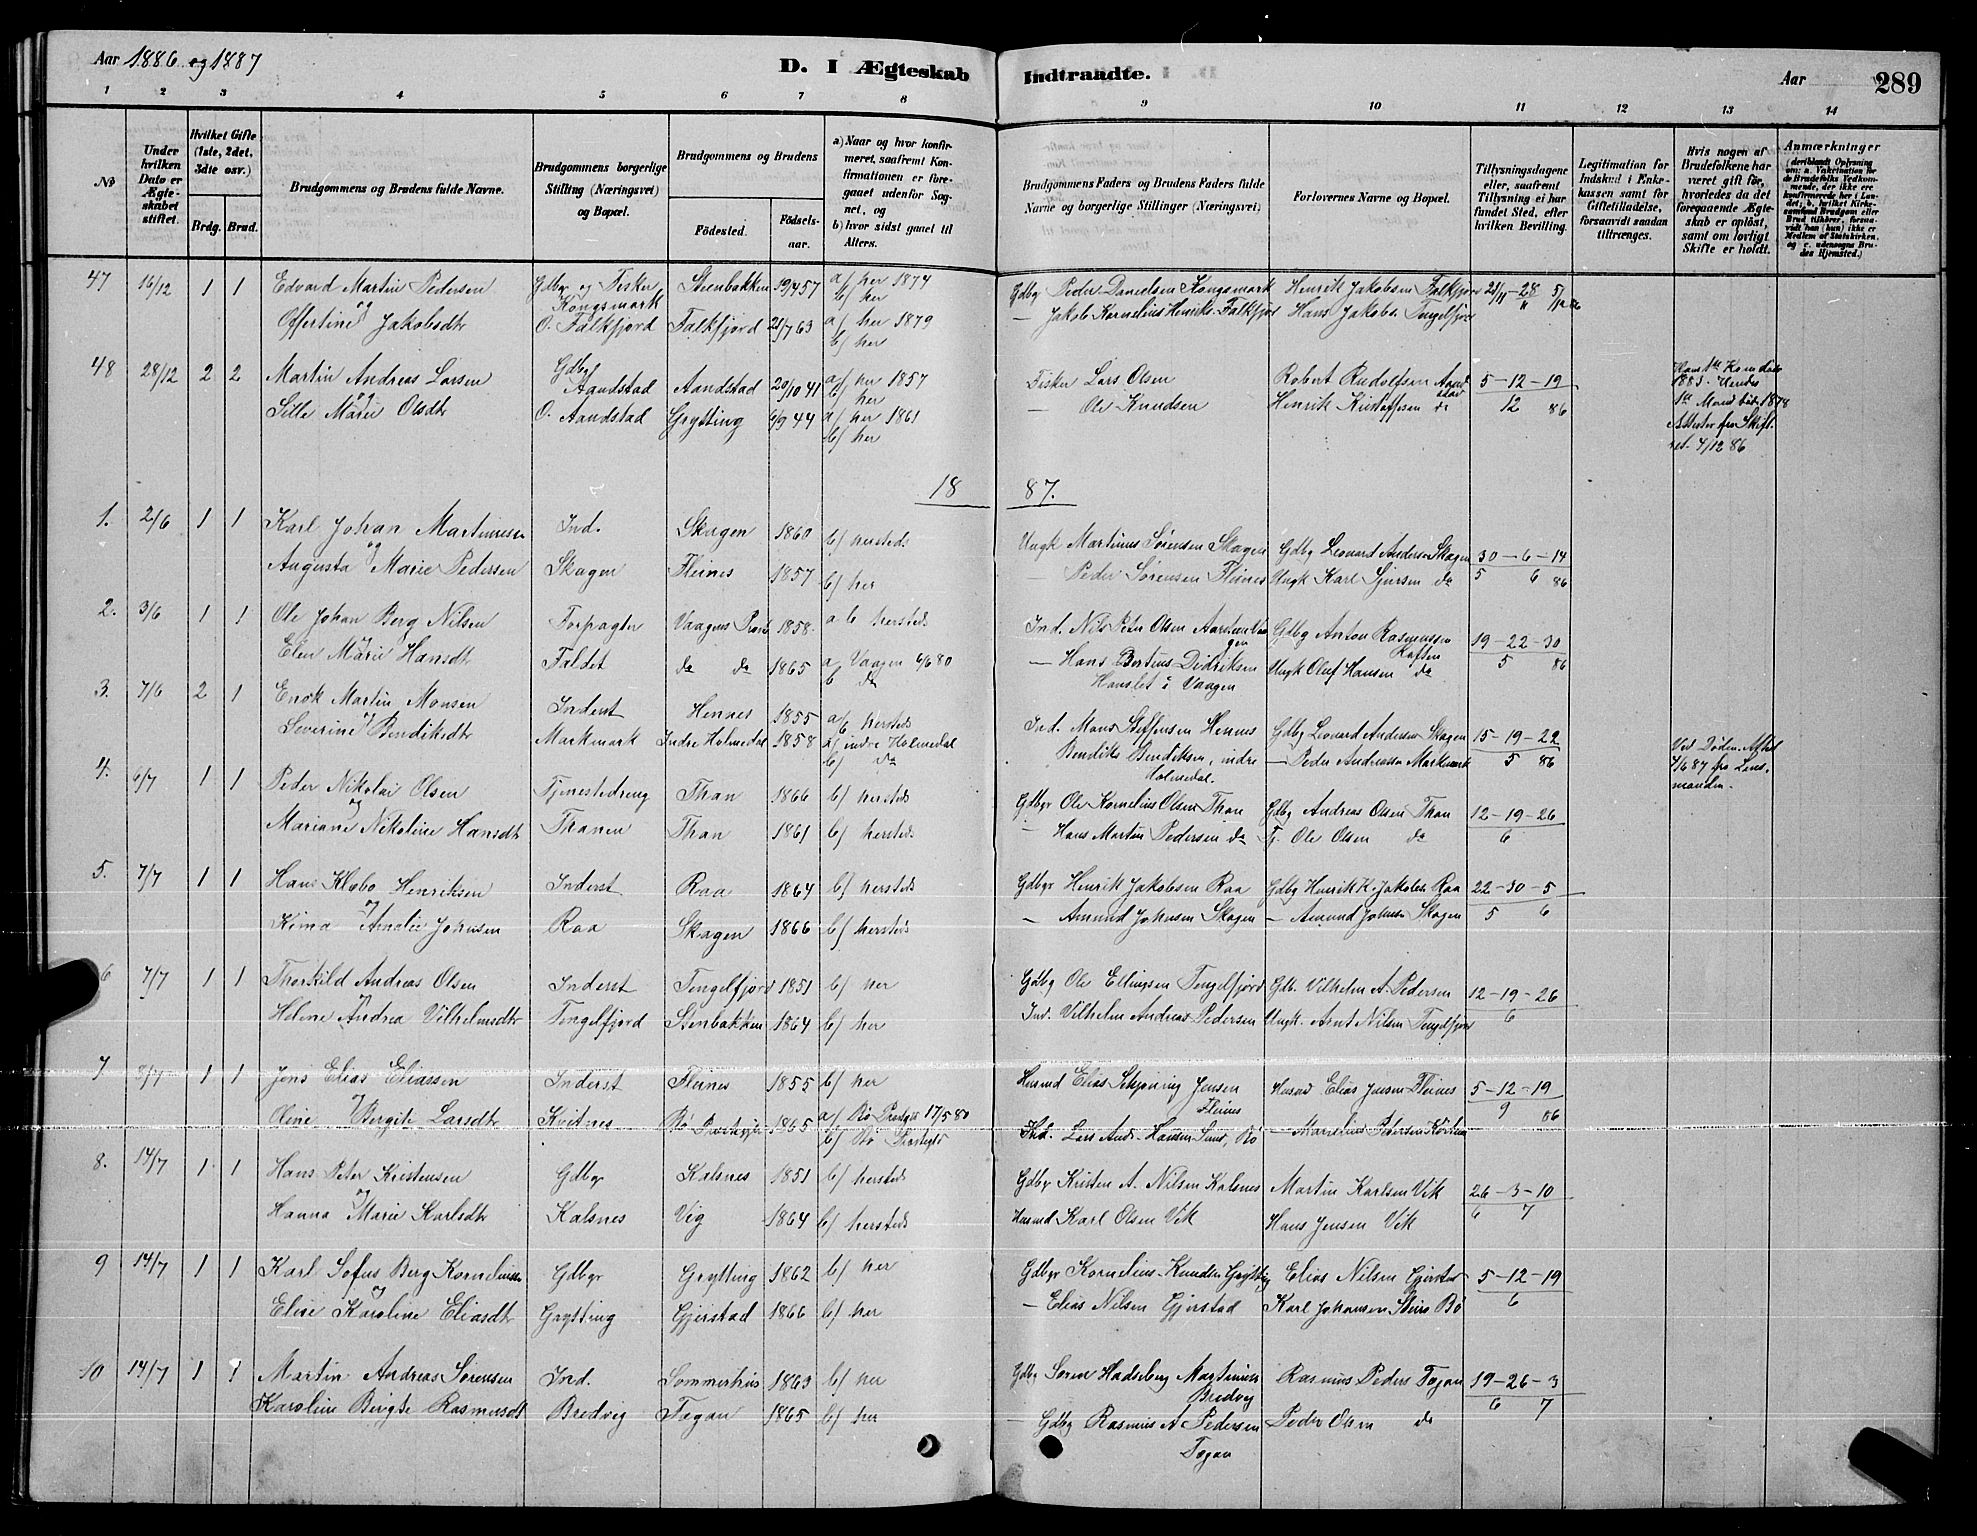 Aar 1886 og 1887
D. I Ægteskab Indtraadte.
Aar 289
1 2 3 4 5 6 7 8 9 10 11 12 13 14
No
Under hvilken Dato er Ægteskabet stiftet.
Hvilket Gifte (1ste, 2det, 3die osv.)
Brdg. Brud.
Brudgommens og Brudens fulde Navne.
Brudgommens borgerlige Stilling (Næringsvei) og Bopæl.
Brudgommens og Brudens
Födested. Födselsaar.
a) Naar og hvor konfirmeret, saafremt Konfirmationen er foregaaet udenfor Sognet, og
b) hvor sidst gaaet til Alters.
Brudgommens Faders og Brudens Faders fulde Navne og borgerlige Stillinger (Næringsvei)
Forlovernes Navne og Bopæl.
Tillysningsdagene eller, saafremt Tillysning ei har fundet Sted, efter hvilken Bevilling.
Legitimation for Indskud i Enkekassen samt for Giftetilladelse, forsaavidt saadan tiltrænges.
Hvis nogen af Brudefolkene har været gift för, hvorledes da det foregaaende Ægteskab er oplöst, samt om lovligt Skifte er holdt.
Anmærkninger
47 16/12 1 1 Edvard Martin Pedersen Gdbr og Fisker Kongsmark Steenbakken 19/4 57 a/ her 1874 b/ her Gdbr Peder Danielsen Kongsmark Henrik Jakobsen Falkfjor 21/11 - 28/11 5/12 86
og
Offertine Jakobsdtr O. Falkfjord Falkfjord 21/7 63 a/ her 1879 b/ her — Jakob Kornelius Henriks. Falkfjor Hans Jakobsen Tengelfjor
48 28/12 2 2 Martin Andreas Larsen Gdbr Aandstad Aandstad 20/10 41 a/ her 1857 b/ her Fisker Lars Olsen Robert Rudolfsen Aandstad 5 - 12 - 19
og
Sille Marie Olsdtr O. Aandstad Grytting 6/9 44 a/ her 1861 b/ her — Ole Knudsen Henrik Kristoffersen do 12 86
Hans 1ste Kone död 1883. Hendes 1ste Mand död 1878 Attester fra Skiftret 4/12 86
1887.
1. 2/6 1 1 Karl Johan Martinusen Ind. Skagen 1860 b/ hersteds Ungk Martinus Sörensen Skagen Gdbr Leonard Andersen Skagen 30 - 6 - 14
og
Augusta Marie Pedersen Skagen Fleines 1857 b/ her — Peder Sörensen Fleines Ungk Karl Sjursen do 5 6 86
2. 3/6 1 1 Ole Johan Berg Nilsen Forpagter Vaagens Præst 1858 a b hersteds Ind. Nils Peter Olsen Gdbr Anton Rasmussen Kaften 19 - 22 - 30
og
Elen Marie Hansdtr Faldet do do 1865 a/ Vaagen 6/6 80 b do — Hans Bertius Didriksen Hanslet i Vaagen Ungk Oluf Hansen do 5 86
3. 7/6 2 1 Enok Martin Monsen Inderst Hennes 1855 a/b hersteds Ind. Mons Steffensen Hennes Gdbr Leonard Andersen Skagen 15 - 19 - 22
og
Severine Bendiksdtr Markmark Indre Holmedal 1858 a/ indre Holmedal b/ do Bendiks Bendiksen, indre Holmedal. — Peder Andreassen Markmark 5 86
Ved Döden. Attest 4/6 87 fra Lensmanden.
4. 6/7 1 1 Peder Nikolai Olsen Tjenestedreng Than 1866 b/ hersteds Gdbr Ole Kornelius Olsen Than Gdbr Andreas Olsen Than 12 - 19 - 26
og
Mariane Nikoline Hansdtr Thanen Than 1861 b/ hersteds — Hans Martin Pedersen do Tj. Ole Olsen do 6
5. 7/7 1 1 Hans Klabo Henriksen Inderst Raa 1864 b/ hersteds Gdbr Henrik Jakobsen Raa Gdbr Henrik K. Jakobsen Raa 22 - 30 - 5
og
Kima Amalie Johnsen Raa Skagen 1866 b/ hersteds — Amund Johnsen Skagen — Amund Johnsen Skagen 5 6
6 7/7 1 1 Thorkild Andreas Olsen Inderst Tengelfjord 1851 b/ her Gdbr Ole Ellingsen Tengelfjord Gdb. Vilhelm A. Pedersen 12 - 19 - 26
og
Heline Andrea Vilhelmsdtr Tengelfjord Stenbakken 1864 b/ her Ind. Vilhelm Andreas Pedersen Ungk. Arnt Nilsen Tengelfjor 6
7 8/7 1 1 Jens Elias Eliassen Inderst Fleines 1855 b/ her Husmd Elias Schjöning Jensen Fleines Husmd Elias Jensen Fleines 5 - 12 - 19
og
Oline Bergite Larsdtr Kvitnes Bö Præstegj. 1865 a/ Bö Præstgj 17/5 80 b/ Bö Præstgj Lars Andr. Hansen Sund, Bö — Marselius Pedersen 9 86
8. 14/7 1 1 Hans Peter Kristensen Gdbr Kalsnes 1851 b/ hersteds Gdbr Kristen A. Nilsen Kalsnes Martin Karlsen Vik 26 - 3 - 10
og
Hanna Marie Karlsdtr Kalsnes Vig 1864 b/ hersteds Husmd Karl Olsen Vik Hans Jensen Vik 6 7
9 14/7 1 1 Karl Sofus Berg Korneliussen Gdbr Grytting 1862 b/ her Gdbr Kornelius Knudsen Grytting Elias Nilsen Gjerstad 5 - 12 - 19
og
Elise Karoline Eliasdtr Grytting Gjerstad 1866 b/ her — Elias Nilsen Gjerstad Karl Johansen Bö 6
10 14/7 1 1 Martin Andreas Sörensen Ind. Sommerhus 1863 b/ her Gdbr Sören Hadseberg Martinusen Bredvig Rasmus Peders Togan 19 - 26 - 3
Karoline Birgte Rasmusdt Bredvig Togan 1865 b/ her — Gdbr Rasmus A. Pedersen Togan Peder Olsen do 6 7